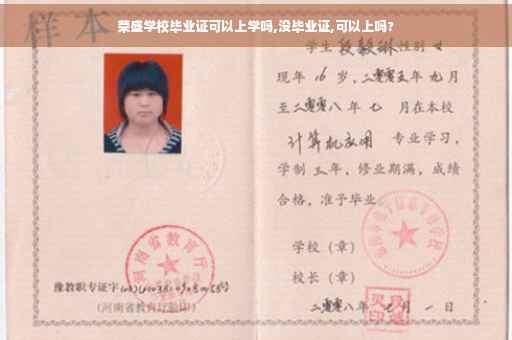 荣盛学校毕业证可以上学吗,没毕业证,可以上吗?
样本
学生 段毅琳 性别 女
现年 16 岁,二零零五年 九 月
至二零零八年 七 月在本校
计算机应用 专业学习,
学制 三 年,修业期满,成绩
合格,准予毕业
学校(章)
校长(章)
二零零八年 七 月 一 日
河南省教育厅
豫教职专证字
(河南省教育厅验印)